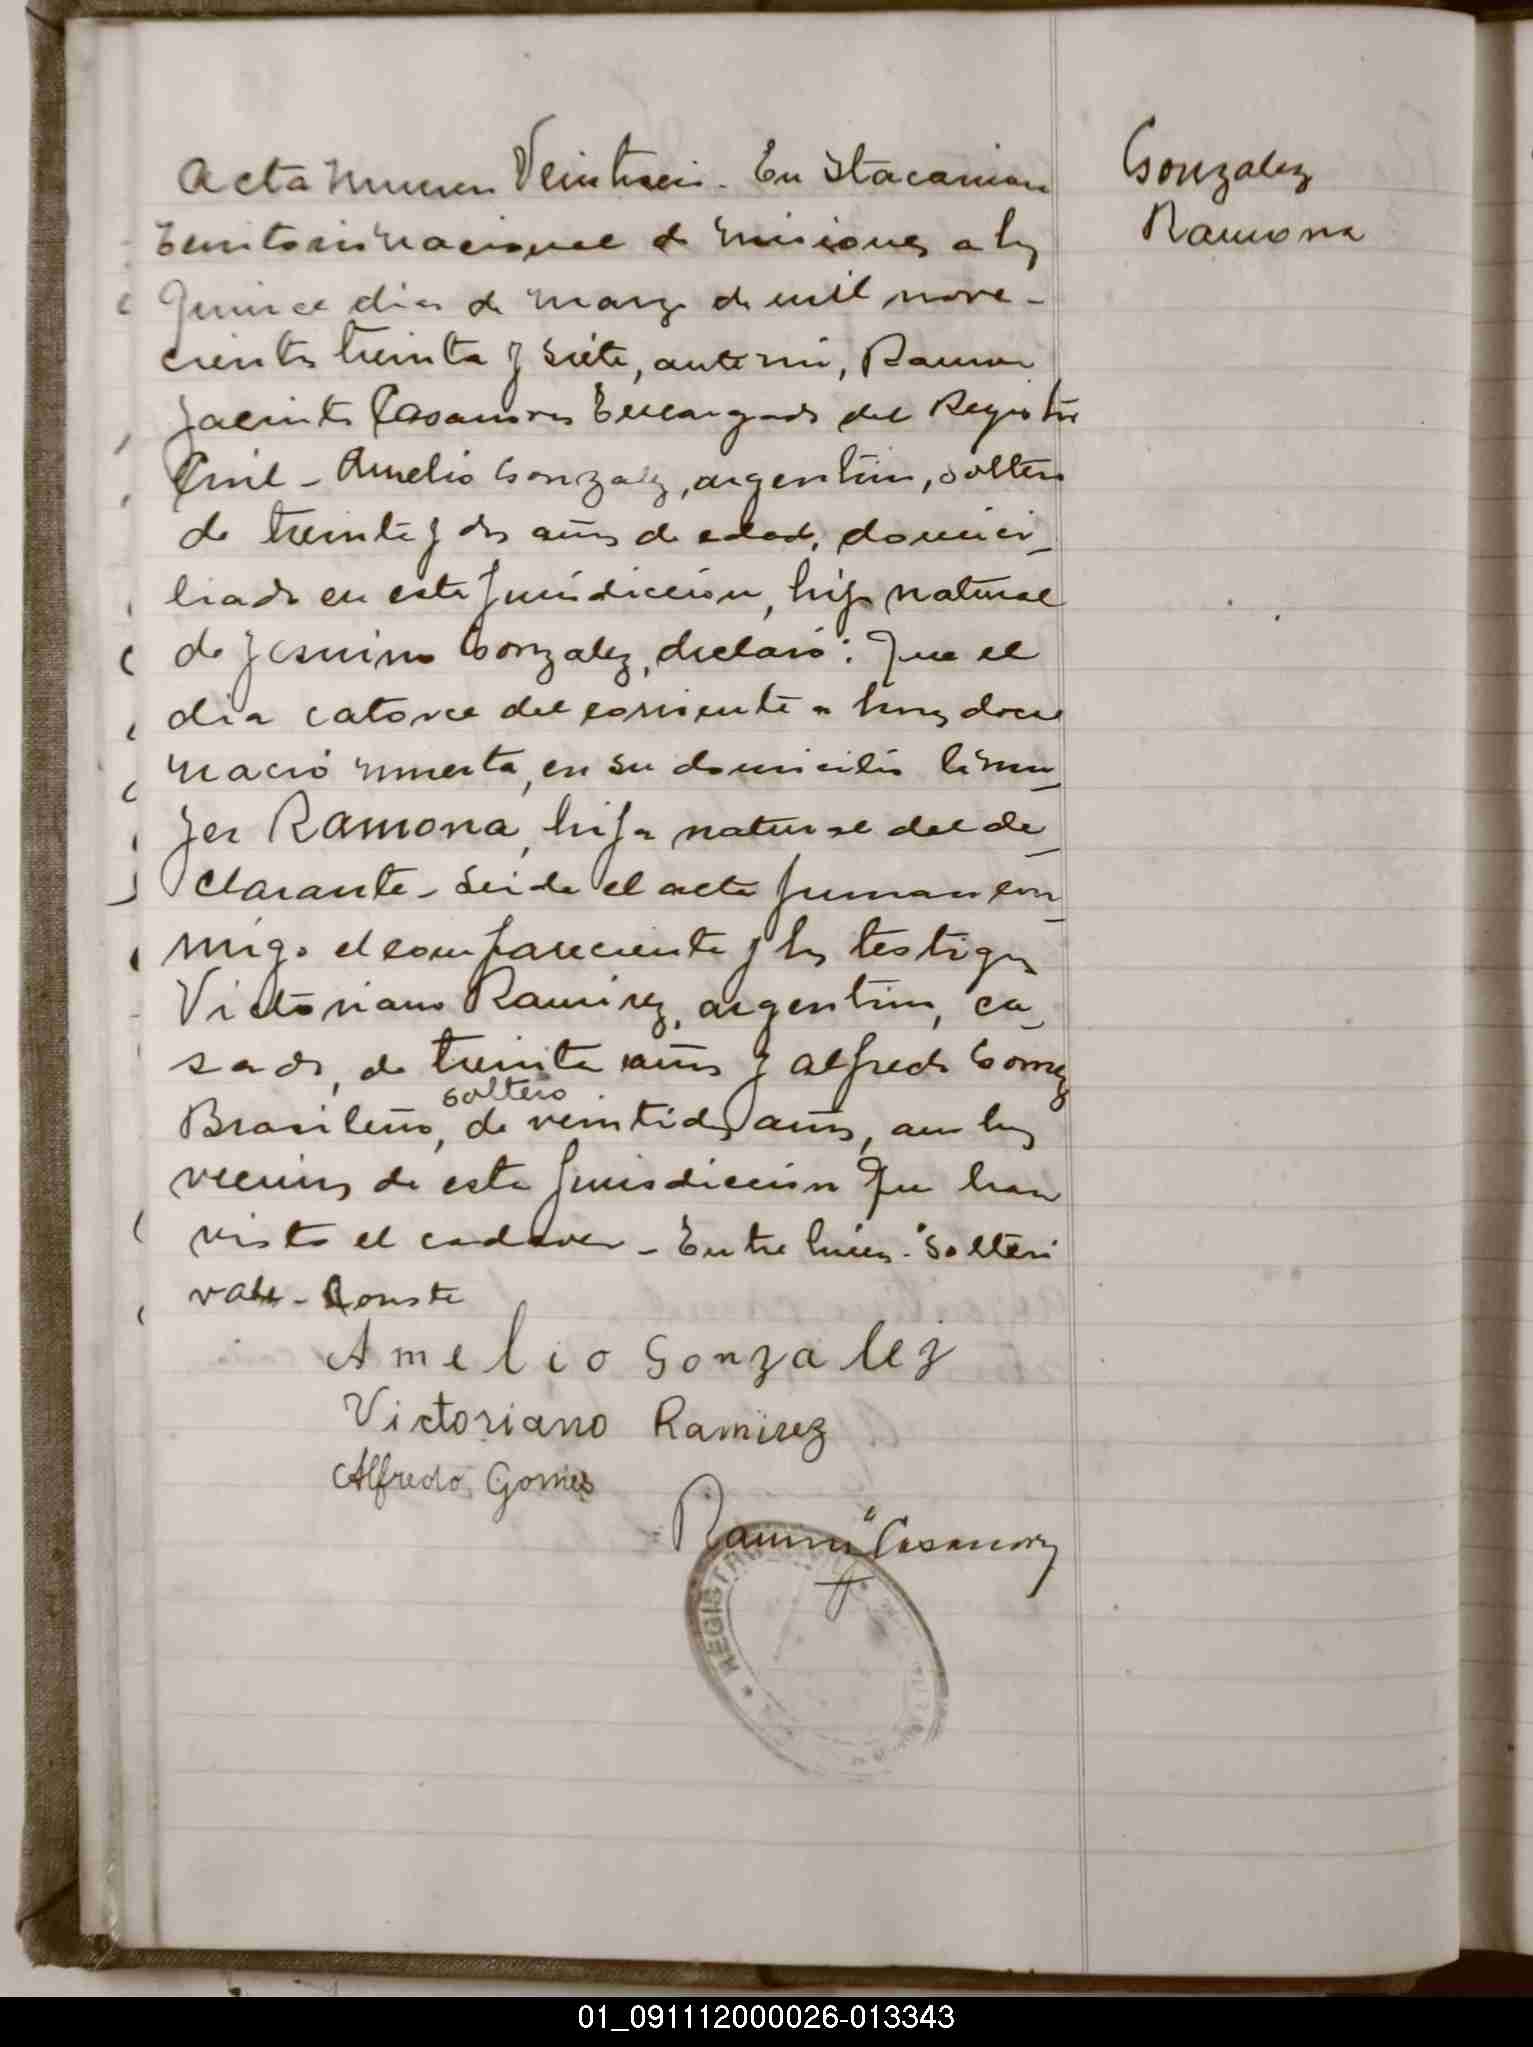 Acta numero Veintiseis. En Itacaruare
territorio nacional de Misiones a los
quince dias de Marzo de mil nove-
cientos treinta y siete, ante mi, Ramon
Jacinto Casanova Encargado del Registro
Civil - Amelio Gonzalez, argentino, soltero
de treinta y dos años de edad, domici-
liado en esta jurisdiccion, hijo natural
de Gonzalez, declaró: Que el
dia catorce del corriente a horas doce
nació muerta, en su domicilio la mu-
jer Ramona, hija natural del de-
clarante - Leida el acta firman con-
migo el compareciente y los testigos
Victoriano Ramirez, argentino, ca-
sado, de treinta años y Alfredo Gomez
soltero
Brasileño, de veintidos años, ambos
vecinos de esta jurisdiccion que han
visto el cadaver - Entre linea - "soltero
vale - Conste
Amelio Gonzalez
Victoriano Ramirez
Alfredo Gomes
Ramon J. Casanova
REGISTRO
Gonzalez
Ramona
01_091112000026-013343